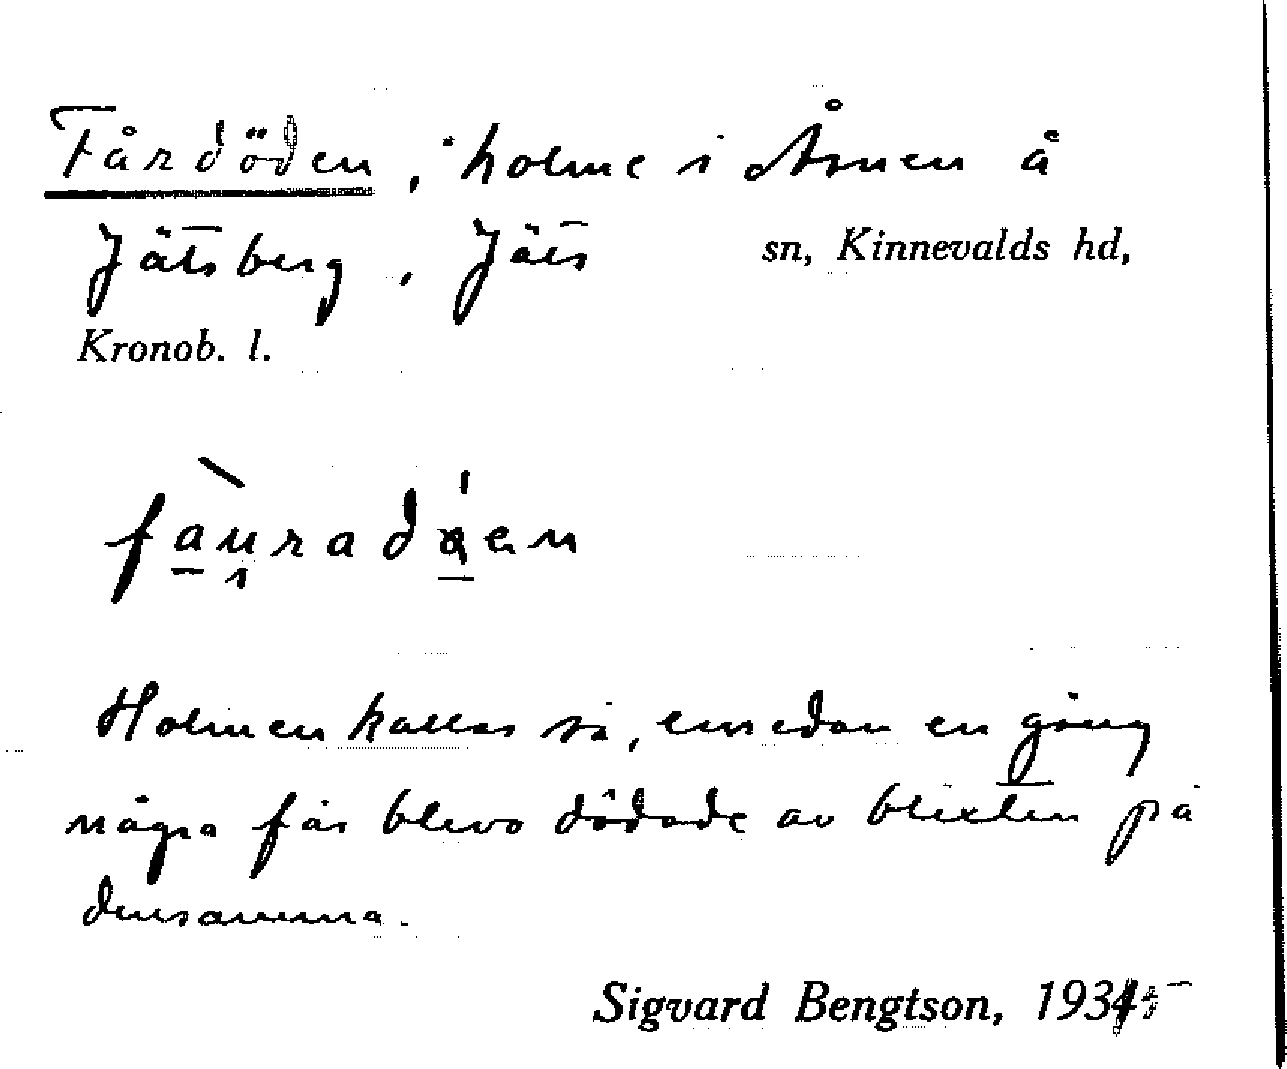 Fårdöden, holme i Åsnen å
Jätsberg, Jäts sn, Kinnevalds hd,
Kronob. l.
Holmen kallas så, emedan en gång
några får blevo dödade av blixten på
densamma.
Sigvard Bengtson, 1935